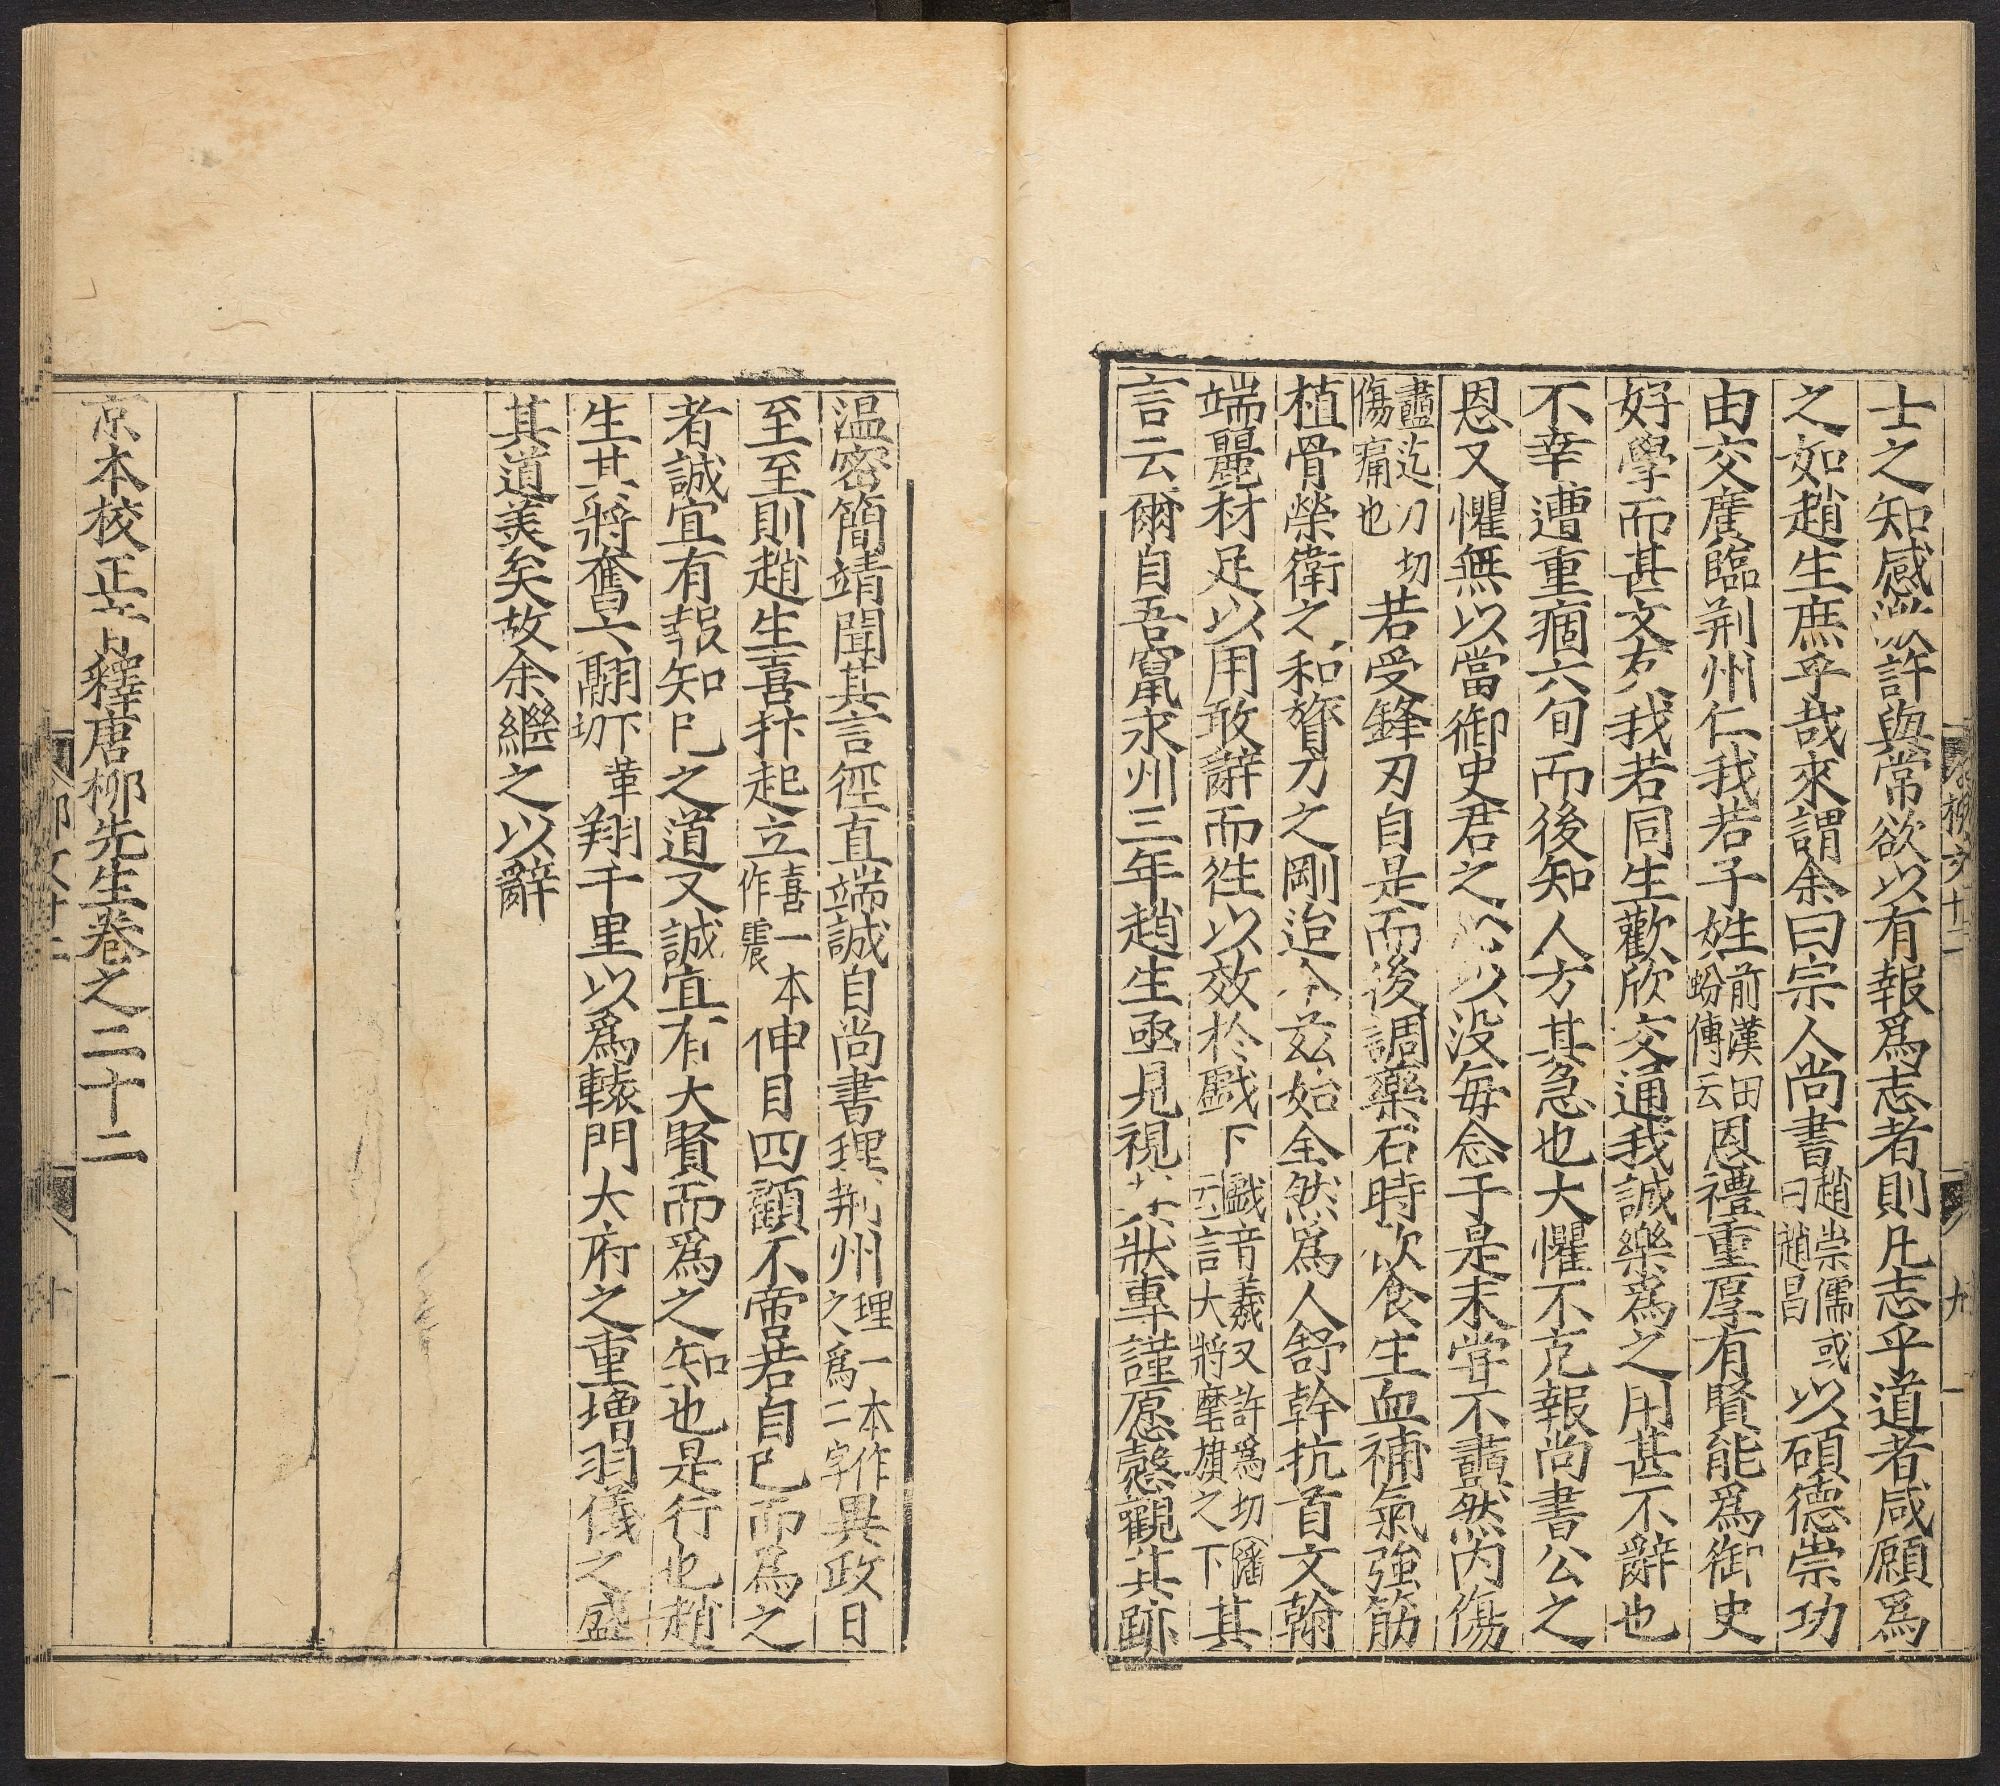 士之知感激許與常欲以有報爲志者則凡志乎道者咸願爲
之如趙生庶乎哉來謂余曰宗人尚書趙崇儒或曰趙昌以碩德崇功
由交廣臨荆州仁我若子姓前漢田蚡傳云恩禮重厚有賢能爲御史
好學而甚文友我若同生歡欣交通我誠樂爲之用甚不辭也
不幸遭重痼六旬而後知人方其急也大懼不克報尚書公之
恩又懼無以當御史君之以没每念于是未嘗不衋然内傷
衋迄力切傷痛也若受鋒刃自是而後調藥石時飲食生血補氣強筋
植骨榮衛之和膂力之剛迨今兹始全然爲人舒幹抗首文翰
端麗材足以用敢辭而往以效於戲下戲音羲又許爲切潘云言大將麾旗之下其
言云爾自吾竄永州三年趙生亟見視其狀專謹愿慤觀其跡
温密簡靖聞其言徑直端誠自尚書理荆州理一本作之爲二字異政日
至至則趙生喜抃起立喜一本作震伸目四顧不啻若自己而爲之
者誠宜有報知已之道又誠宜有大賢而爲之知也是行也趙
生其將奮六翮下革切翔千里以爲轅門大府之重增羽儀之盛
其道美矣故余繼之以辭
京本校正音釋唐柳先生卷之二十二
柳文廿二
九